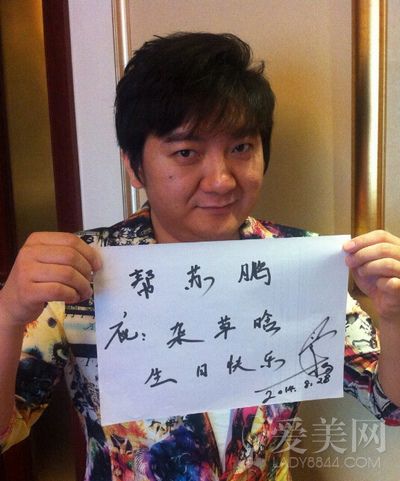 帮苏鹏
晗
生日快乐
2014.8.28
爱美网
LADY8844.COM